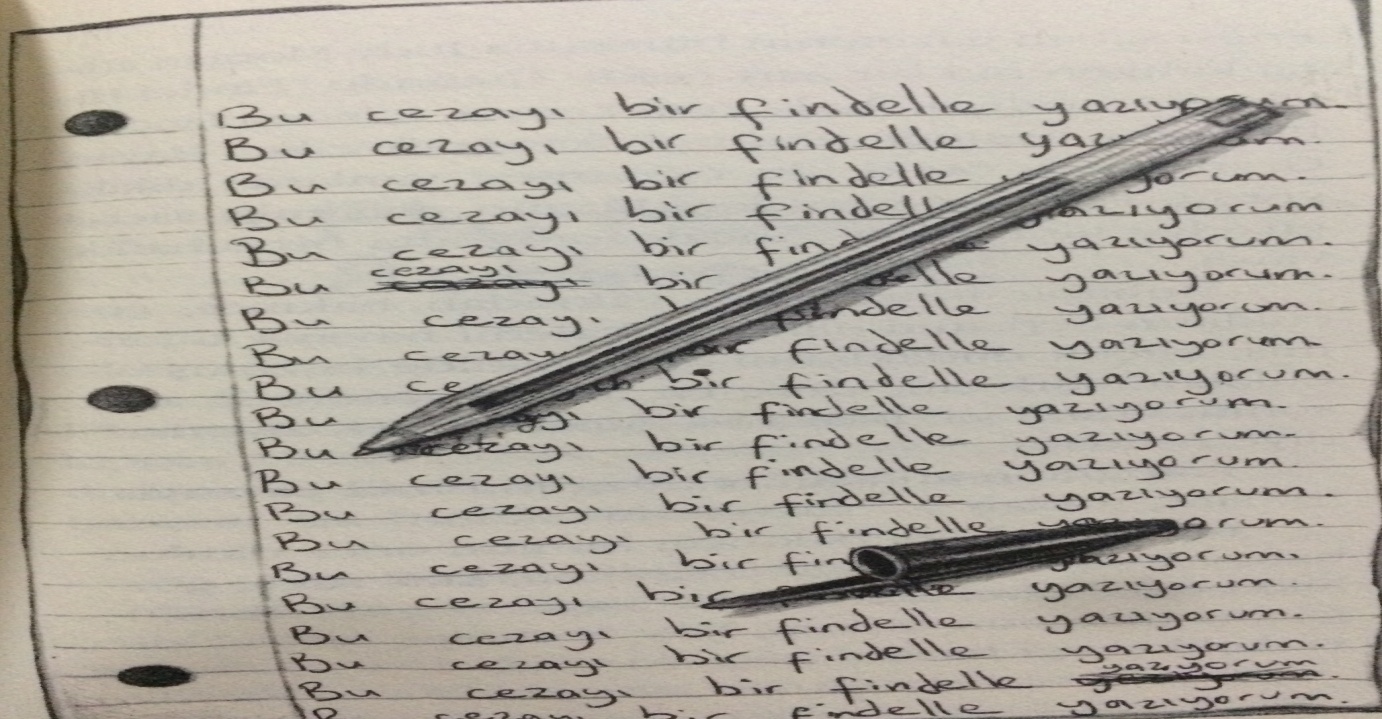 Bu cezayı bir findelle yazıyorum.
Bu cezayı bir findelle
Bu cezayı bir findelle
Bu cezayı bir findelle yazıyorum
Bu cezayı bir yazıyorum.
Bu cezayı bir yazıyorum.
Bu cezayı findelle yazıyorum.
Bu cezayı bir findelle yazıyorum
Bu bir findelle yazıyorum.
Bu bir findelle yazıyorum.
Bu cezayı bir findelle yazıyorum.
Bu cezayı bir findelle yazıyorum.
Bu cezayı bir findelle yazıyorum.
Bu cezayı bir findelle yazıyorum.
Bu cezayı bir yazıyorum.
Bu cezayı bir yazıyorum.
Bu cezayı bir findelle yazıyorum.
Bu cezayı bir findelle yazıyorum.
Bu cezayı bir findelle yazıyorum
cezayı bir findelle yazıyorum.